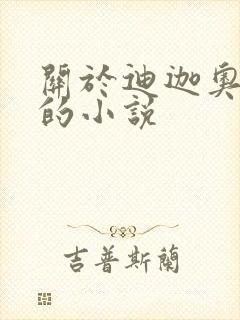 關於迪迦奧
的小説
吉普斯蘭